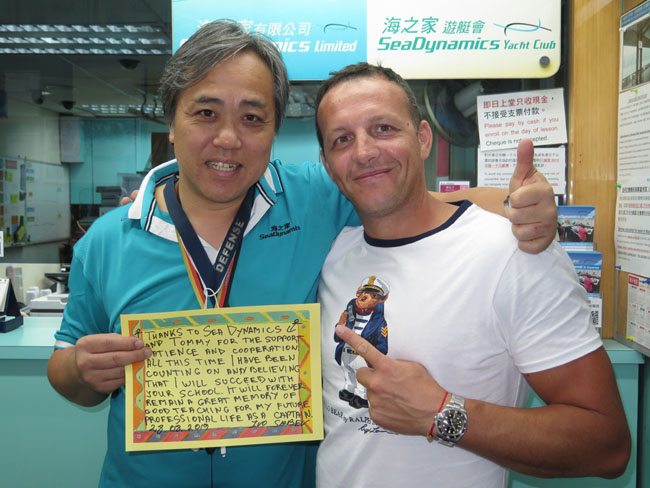 海之家 有限公司
SeaDynamics Limited
海之家 遊艇會
SeaDynamics Yacht Club
即日上堂只收現金，
不接受支票付款。
Please pay by cash if you
enroll on the day of lesson.
Cheque is not accepted.
海之家
SeaDynamics
DEFENSE
THANKS TO SEA DYNAMICS
AND TOMMY FOR THE SUPPORT
PATIENCE AND COOPERATION
ALL THIS TIME I HAVE BEEN
COUNTING ON AND BELIEVING
THAT I WILL SUCCEED WITH
YOUR SCHOOL. IT WILL FOREVER
REMAIN A GREAT MEMORY OF
GOOD TEACHING FOR MY FUTURE
PROFESSIONAL LIFE AS A CAPTAIN.
BEAR
RALPH